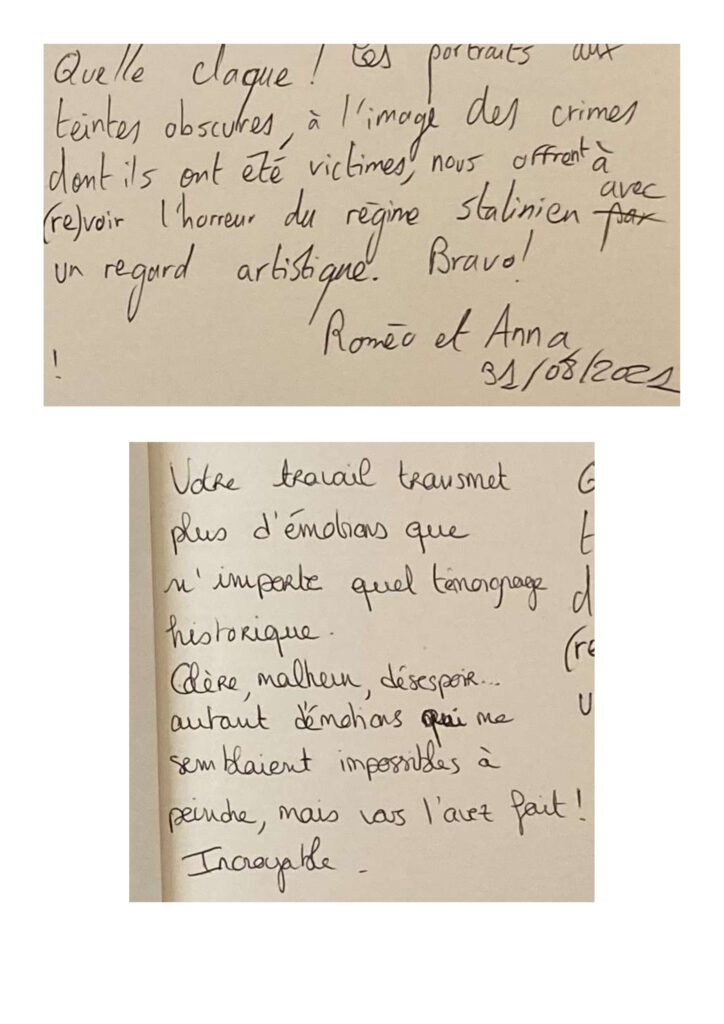 Quelle claque ! Ces portraits aux
teintes obscures, à l'image des crimes
dont ils ont été victimes, nous offrent à
(re)voir l'horreur du régime stalinien par avec
un regard artistique. Bravo!
Roméo et Anna
31/08/2021
!
Votre travail transmet
plus d'émotions que
n'importe quel témoignage
historique.
Colère, malheur, désespoir...
autant d'émotions qui me
semblaient impossibles à
peindre, mais vous l'avez fait !
Incroyable.